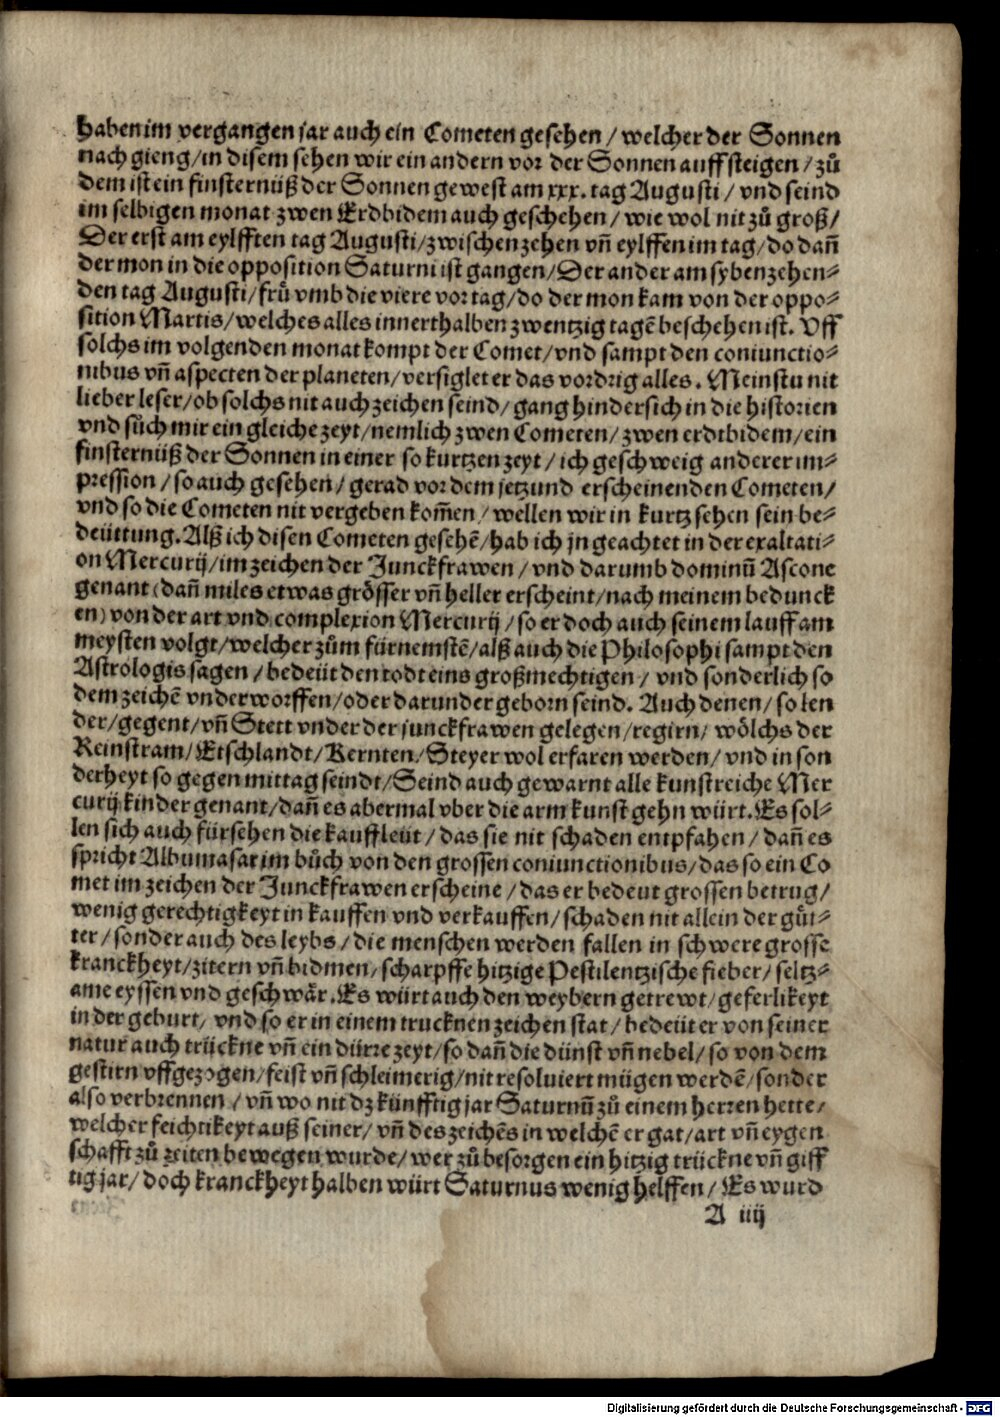 haben im vergangen jar auch ein Cometen gesehen / welcher der Sonnen
nach gieng / in disem sehen wir ein andern vor der Sonnen auffsteigen / zů
dem ist ein finsternüß der Sonnen gewest am xxx. tag Augusti / vnd seind
im selbigen monat zwen Erdbidem auch geschehen / wie wol nit zů groß /
Der erst am eylfften tag Augusti / zwischen zehen vñ eylffen im tag / do dañ
der mon in die opposition Saturni ist gangen / Der ander am sybenzehen⸗
den tag Augusti / frü vmb die viere vor tag / do der mon kam von der oppo⸗
sition Martis / welches alles innerthalben zwentzig tagē beschehen ist. Vff
solchs im volgenden monat kompt der Comet / vnd sampt den coniunctio⸗
nibus vñ aspecten der planeten / versiglet er das vordrig alles. Meinstu nit
lieber leser / ob solchs nit auch zeichen seind / gang hindersich in die historien
vnd sůch mir ein gleiche zeyt / nemlich zwen Cometen / zwen erdtbidem / ein
finsternüß der Sonnen in einer so kurtzen zeyt / ich geschweig anderer im⸗
pression / so auch gesehen / gerad vor dem jetzund erscheinenden Cometen /
vnd so die Cometen nit vergeben kom̃en / wellen wir in kurtz sehen sein be⸗
deüttung. Alß ich disen Cometen gesehē / hab ich jn geachtet in der exaltati⸗
on Mercurij / im zeichen der Junckfrawen / vnd darumb dominū Ascone
genant (dañ miles etwas grösser vñ heller erscheint / nach meinem beduncken
en) von der art vnd complexion Mercurij / so er doch auch seinem lauff am
meysten volgt / welcher zům fürnemstē / alß auch die Philosophi sampt den
Astrologis sagen / bedeüt den todt eins großmechtigen / vnd sonderlich so
dem zeichē vnderworffen / oder darunder geborn seind. Auch denen / so len
der / gegent / vñ Stett vnder der junckfrawen gelegen / regirn / wölchs der
Reinstram / Etschlandt / Kernten / Steyer wol erfaren werden / vnd in son
derheyt so gegen mittag seindt / Seind auch gewarnt alle kunstreiche Mer
curij kinder genant / dañ es abermal vber die arm kunst gehn würt. Es sol⸗
len sich auch fürsehen die kauffleüt / das sie nit schaden entpfahen / dañ es
spricht Albumasar im bůch von den grossen coniunctionibus / das so ein Co
met im zeichen der Junckfrawen erscheine / das er bedeut grossen betrug /
wenig gerechtigkeyt in kauffen vnd verkauffen / schaden nit allein der güt⸗
ter / sonder auch des leybs / die menschen werden fallen in schwere grosse
kranckheyt / zitern vñ bidmen / scharpffe hitzige Pestilentzische fieber / seltz⸗
ame eyssen vnd geschwär. Es würt auch den weybern getrewt / geferlikeyt
in der geburt / vnd so er in einem trucknen zeichen stat / bedeüt er von seiner
natur auch trückne vñ ein dürre zeyt / so dañ die dünst vñ nebel / so von dem
gestirn vffgezogen / feist vñ schleimerig / nit resoluiert mügen werdē / sonder
also verbrennen / vñ wo nit dz künfftig jar Saturnū zů einem herren hette /
welcher feichtikeyt auß seiner / vñ des zeichēs in welchē er gat / art vñ eygen
schafft zů zeiten bewegen wurde / wer zů besorgen ein hitzig trückne vñ giff
tig jar / doch kranckheyt halben würt Saturnus wenig helffen / Es wurd
A iiij
Digitalisierung gefördert durch die Deutsche Forschungsgemeinschaft - DFG